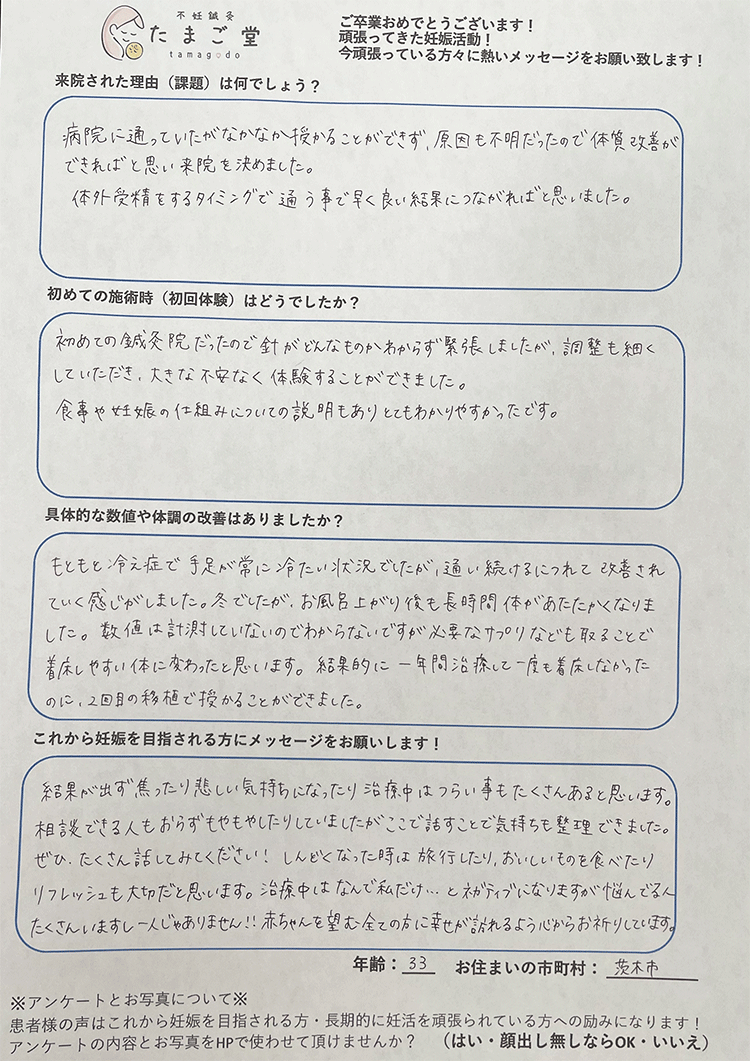 不妊鍼灸
たまご堂
tamagodo
ご卒業おめでとうございます！
頑張ってきた妊娠活動！
今頑張っている方々に熱いメッセージをお願い致します！
来院された理由（課題）は何でしょう？
病院に通っていたがなかなか授かることができず、原因も不明だったので体質改善が
できればと思い来院を決めました。
体外受精をするタイミングで通う事で早く良い結果につながればと思いました。
初めての施術時（初回体験）はどうでしたか？
初めての鍼灸院だったので針がどんなものかわからず緊張しましたが、調整も細く
していただき、大きな不安なく体験することができました。
食事や妊娠の仕組みについての説明もありとてもわかりやすかったです。
具体的な数値や体調の改善はありましたか？
もともと冷え症で手足が常に冷たい状況でしたが、通い続けるにつれて改善され
ていく感じがしました。冬でしたが、お風呂上がり後も長時間体があたたかくなりま
した。数値は計測していないのでわからないですが必要なサプリなども取ることで
着床しやすい体に変わったと思います。結果的に一年間治療して一度も着床しなかった
のに、2回目の移植で授かることができました。
これから妊娠を目指される方にメッセージをお願いします！
結果が出ず焦ったり悲しい気持ちになったり治療中はつらい事もたくさんあると思います。
相談できる人もおらずもやもやしたりしていましたがここで話すことで気持ちも整理できました。
ぜひ、たくさん話してみてください！しんどくなった時は旅行したり、おいしいものを食べたり
リフレッシュも大切だと思います。治療中はなんで私だけ…とネガティブになりますが悩んでる人
たくさんいますし一人じゃありません!!赤ちゃんを望む全ての方に幸せが訪れるよう心からお祈りしています。
年齢：33 お住まいの市町村：茨木市
※アンケートとお写真について※
患者様の声はこれから妊娠を目指される方・長期的に妊活を頑張られている方への励みになります！
アンケートの内容とお写真をHPで使わせて頂けませんか？（はい・顔出し無しならOK・いいえ）